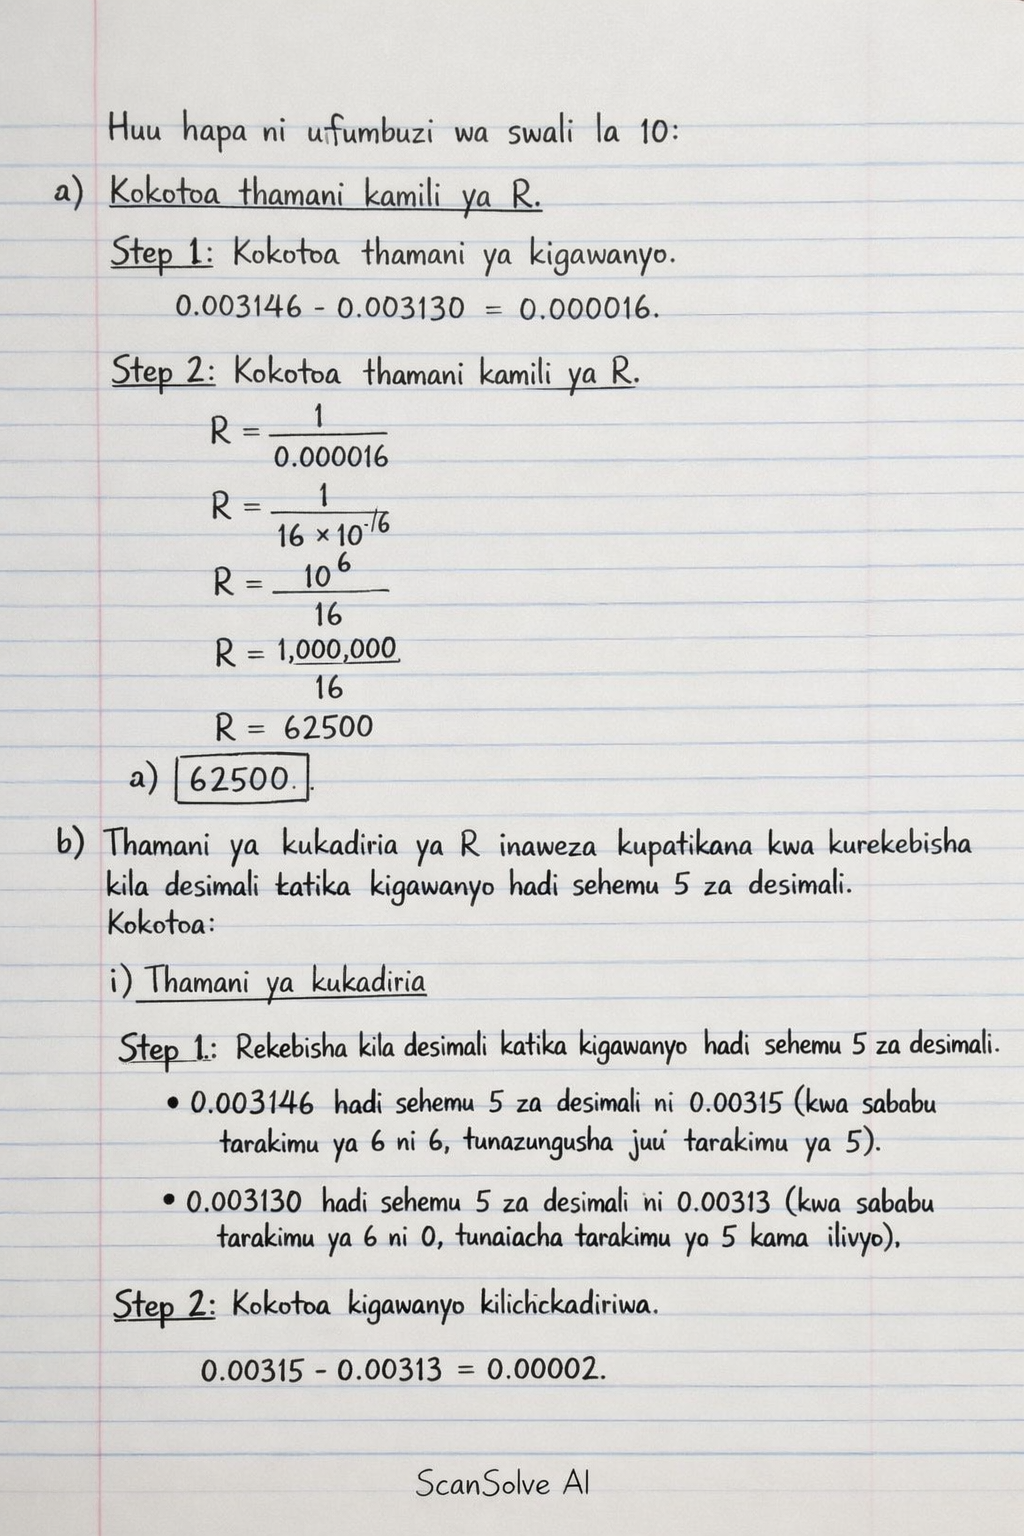 Huu hapa ni ufumbuzi wa swali la 10:
a) Kokotoa thamani kamili ya R.
Step 1: Kokotoa thamani ya kigawanyo.
0.003146 - 0.003130 = 0.000016.
Step 2: Kokotoa thamani kamili ya R.
R = 1
0.000016
R = 1
16 × 10⁻⁶
R = 10⁶
16
R = 1,000,000
16
R = 62500
a) 62500.
b) Thamani ya kukadiria ya R inaweza kupatikana kwa kurekebisha
kila desimali katika kigawanyo hadi sehemu 5 za desimali.
Kokotoa:
i) Thamani ya kukadiria
Step 1.: Rekebisha kila desimali katika kigawanyo hadi sehemu 5 za desimali.
• 0.003146 hadi sehemu 5 za desimali ni 0.00315 (kwa sababu
tarakimu ya 6 ni 6, tunazungusha juu tarakimu ya 5).
• 0.003130 hadi sehemu 5 za desimali ni 0.00313 (kwa sababu
tarakimu ya 6 ni 0, tunaiacha tarakimu yo 5 kama ilivyo),
Step 2: Kokotoa kigawanyo kilichckadiriwa.
0.00315 - 0.00313 = 0.00002.
ScanSolve AI